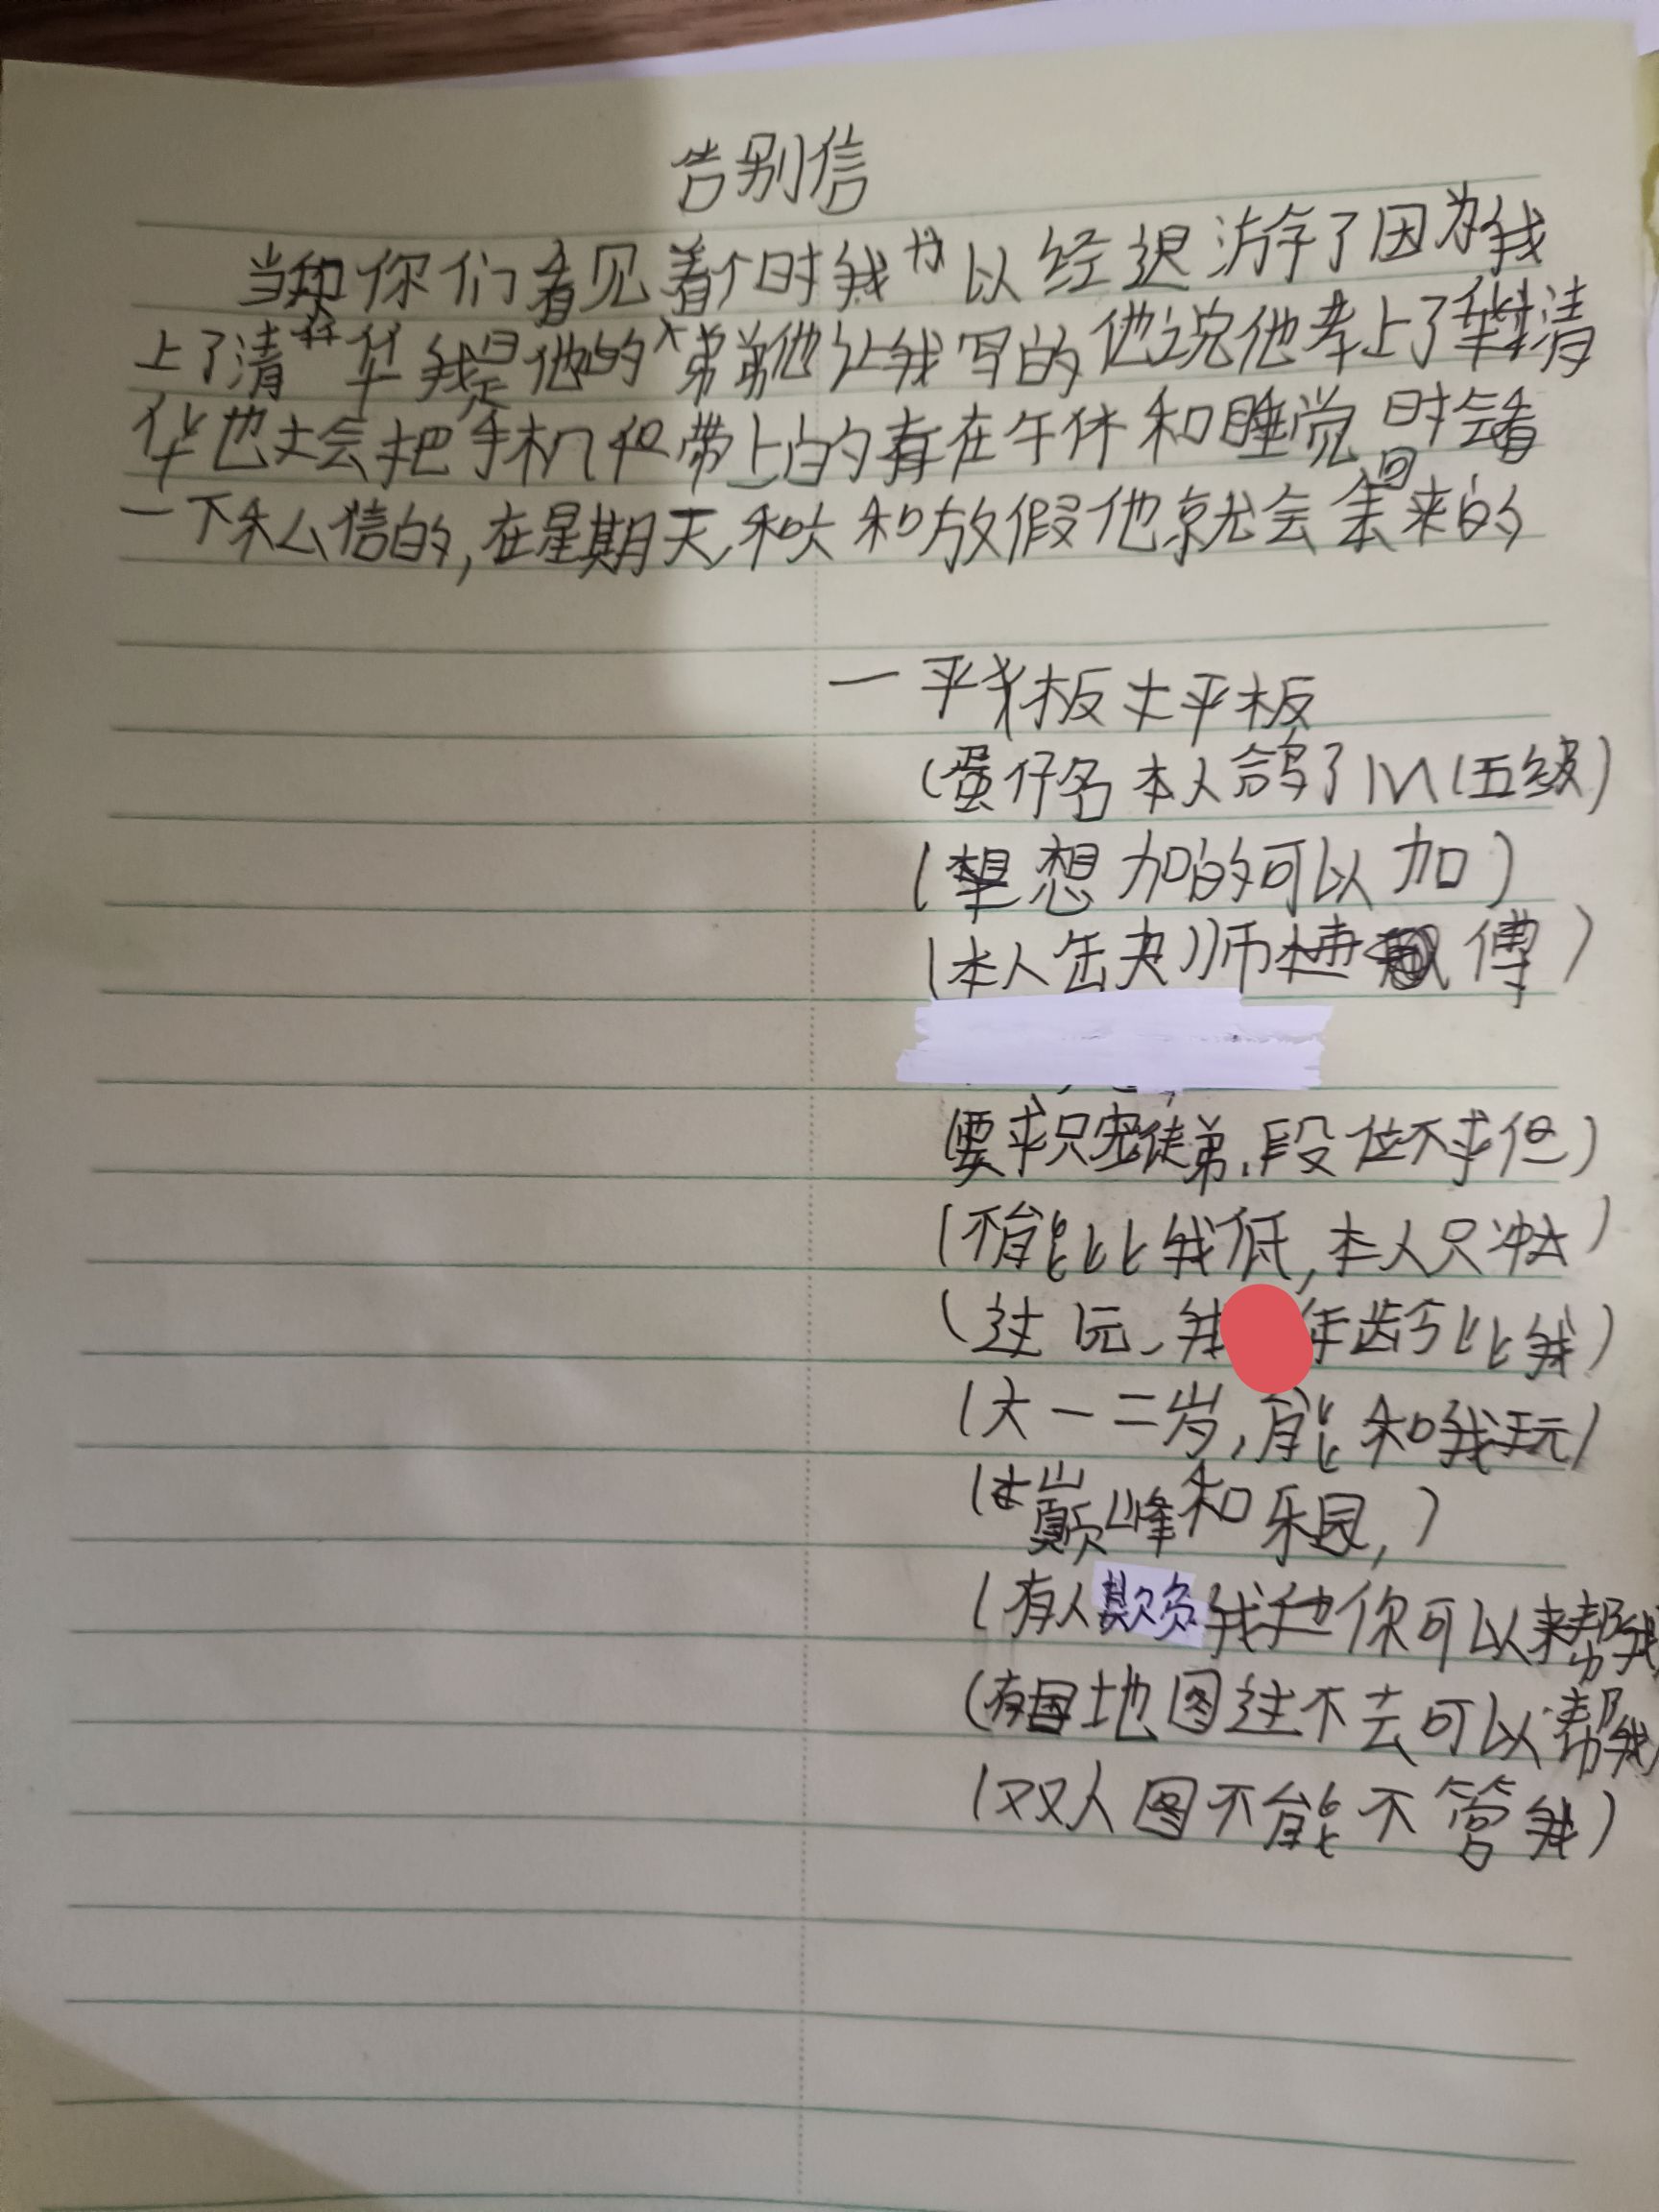 告别信
当你们看见着个时我以经退游了因为我
上了清华我是他的弟弟他让我写的他说他考上了清
华也会把手机带上的在午休和睡觉时会看
一下私信的,在星期天,和放假他就会回来的
一平板平板
(蛋仔名本人鸽了IM(五级)
(想加的可以加)
(本人缺师傅)
(要求只宠徒弟,段位不求但)
(不能比我低,本人只冲)
(过玩、我年龄比我)
(大一二岁,能和我玩)
(巅峰和乐园,)
(有人欺负我你可以来帮我
(有地图过不去可以帮我
(双人图不能不管我)